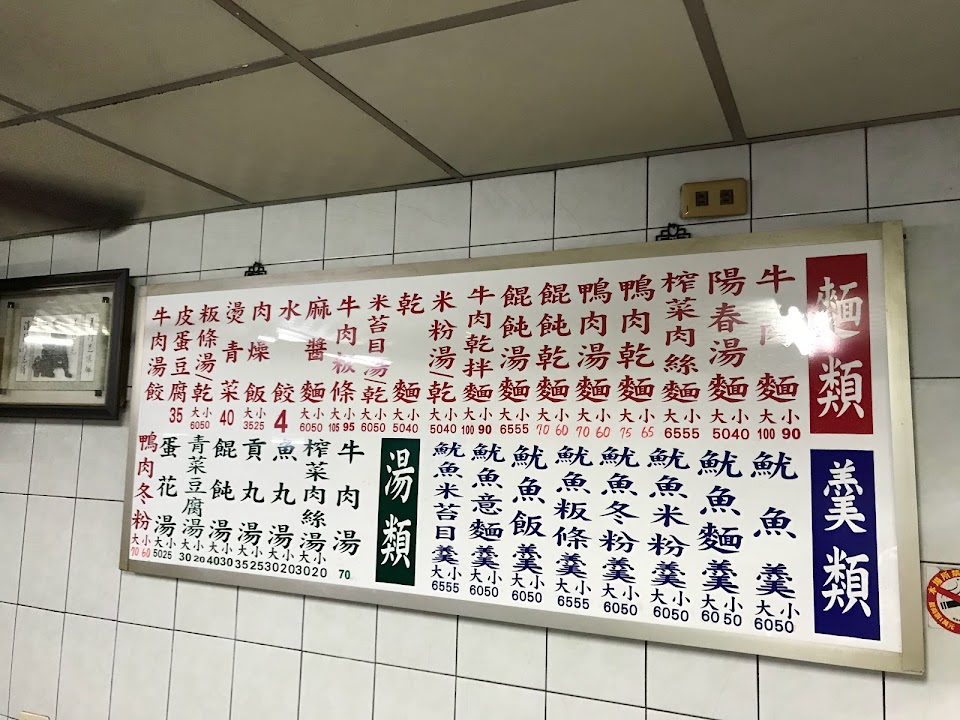 麵類
牛肉麵 大小 100 90
陽春湯麵 大小 5040
榨菜肉絲麵 大小 6555
鴨肉乾麵 大小 75 65
鴨肉湯麵 大小 70 60
餛飩乾麵 大小 70 60
餛飩湯麵 大小 6555
牛肉乾拌麵 大小 100 90
米粉湯乾 大小 5040
乾麵 大小 5040
米苔目湯/乾 大小 6050
牛肉粄條 大小 105 95
麻醬麵 大小 6050
水餃 4
肉燥飯 大小 3525
燙青菜 40
粄條湯/乾 大小 6050
皮蛋豆腐 35
牛肉湯餃
羹類
魷魚羹 大小 6050
魷魚麵羹 大小 6050
魷魚米粉羹 大小 6050
魷魚冬粉羹 大小 6050
魷魚粄條羹 大小 6555
魷魚飯羹 大小 6050
魷魚意麵羹 大小 6050
魷魚米苔目羹 大小 6555
湯類
牛肉湯 70
榨菜肉絲湯 大小 3020
魚丸湯 大小 3020
貢丸湯 大小 3525
餛飩湯 大小 4030
青菜豆腐湯 大小 3020
蛋花湯 大小 5025
鴨肉冬粉 大小 70 60